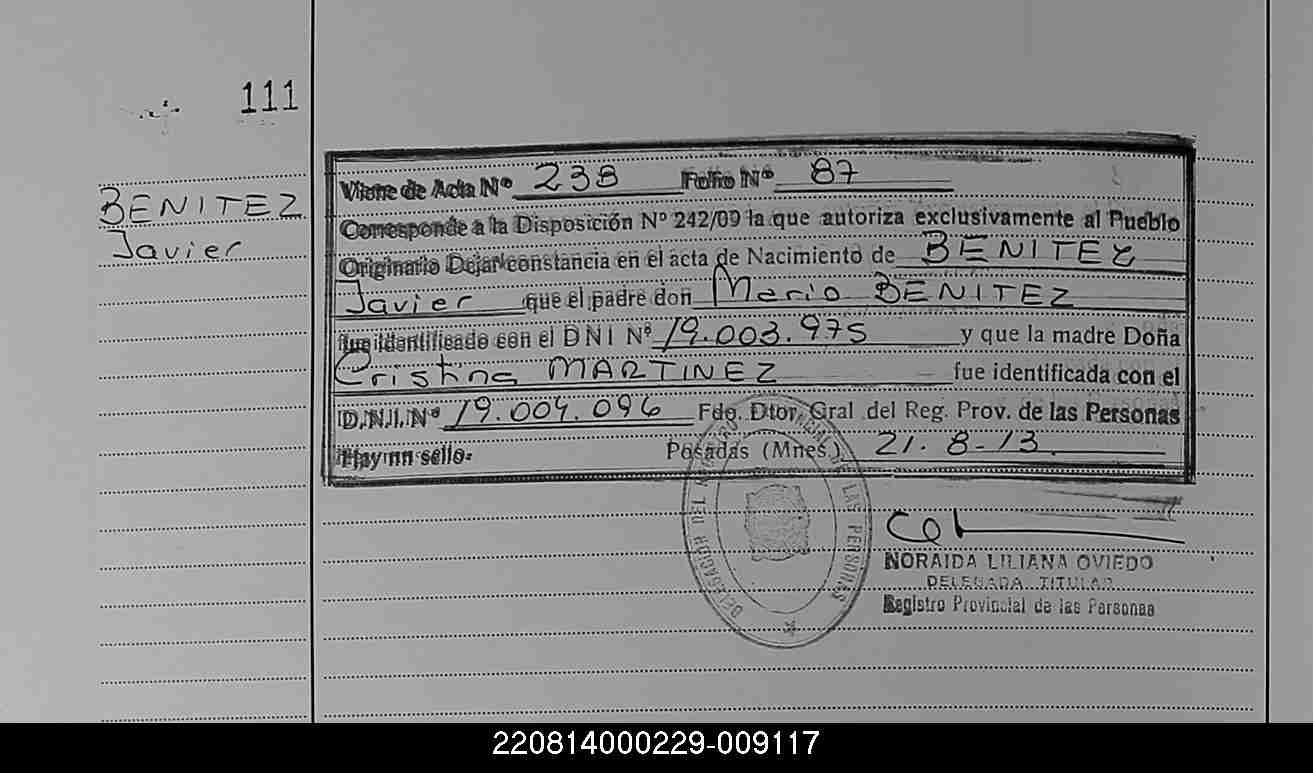 111
BENITEZ
Javier
Viene de Acta Nº 238 Folio Nº 87
Corresponde a la Disposición Nº 242/09 la que autoriza exclusivamente al Pueblo
Originario Dejar constancia en el acta de Nacimiento de BENITEZ
Javier que el padre don Mario BENITEZ
fue identificado con el DNI Nº 19.003.975 y que la madre Doña
Cristina MARTINEZ fue identificada con el
D.N.I.Nº 19.004.096 Fdo. Dtor. Gral del Reg. Prov. de las Personas
Hay un sello- Posadas (Mnes.) 21-8-13.
DELEGACION DEL REGISTRO PROVINCIAL DE LAS PERSONAS
NORAIDA LILIANA OVIEDO
DELEGADA TITULAR
Registro Provincial de las Personas
220814000229-009117